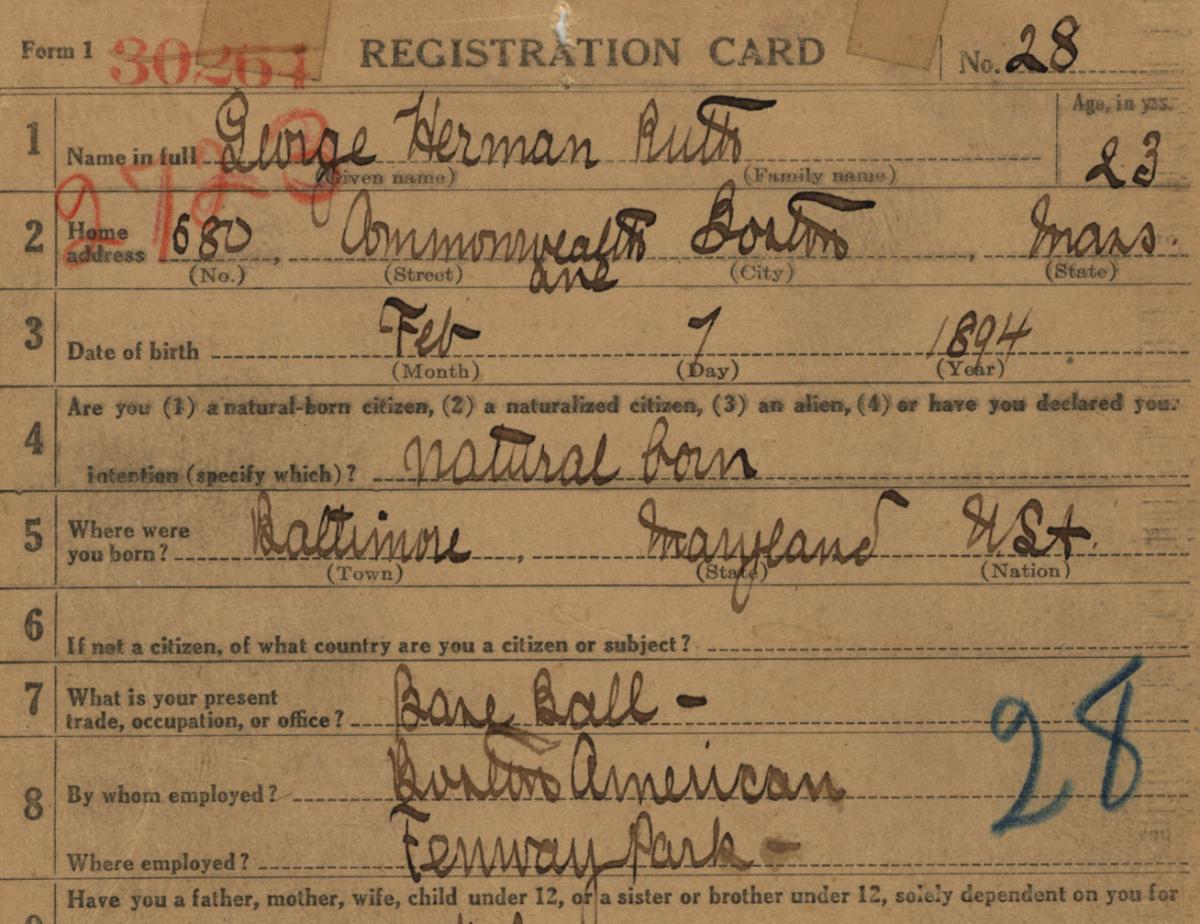 Form 1 30264 REGISTRATION CARD No. 28
1 Name in full George Herman Ruth Age, in yrs.
(Given name) (Family name) 23
2723
2 Home address 680, Commonwealth ave Boston, Mass.
(No.) (Street) (City) (State)
3 Date of birth Feb 7 1894
(Month) (Day) (Year)
Are you (1) a natural-born citizen, (2) a naturalized citizen, (3) an alien, (4) or have you declared your
4 intention (specify which)? natural born
5 Where were you born? Baltimore, Maryland USA
(Town) (State) (Nation)
6 If not a citizen, of what country are you a citizen or subject?
7 What is your present trade, occupation, or office? Base Ball -
28
8 By whom employed? Boston American
Where employed? Fenway Park -
Have you a father, mother, wife, child under 12, or a sister or brother under 12, solely dependent on you for